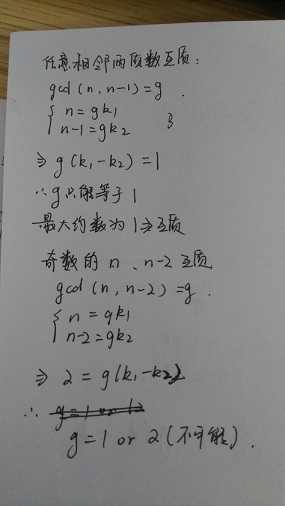 任意相邻两质数互质:
gcd(n, n-1)=g.
{ n=gk1
n-1=gk2
⇒ g(k1-k2)=1
∴ g只能等于1
最大约数为1⇒互质
奇数的n、n-2互质
gcd(n, n-2)=g.
{ n=gk1
n-2=gk2
⇒ 2=g(k1-k2)
∴
g=1 or 2(不可能).